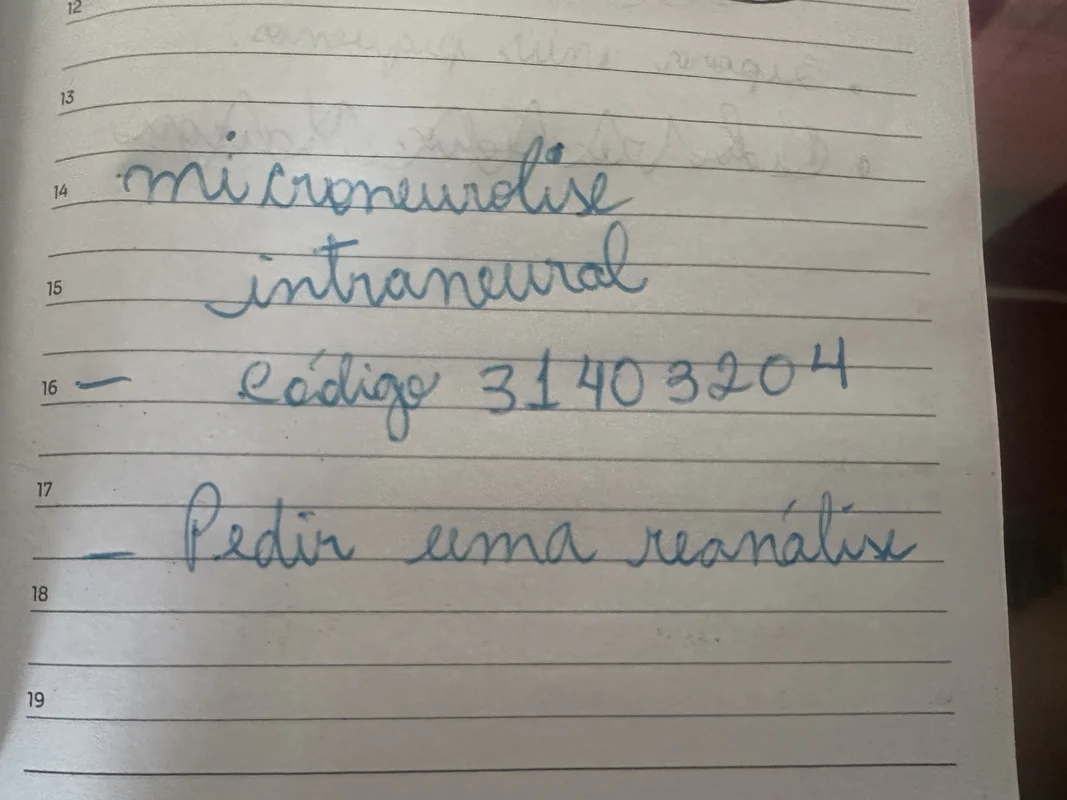 12
13
microneurolise
14
intraneural
15
16 — código 31403204
17
— Pedir uma reanálise
18
19